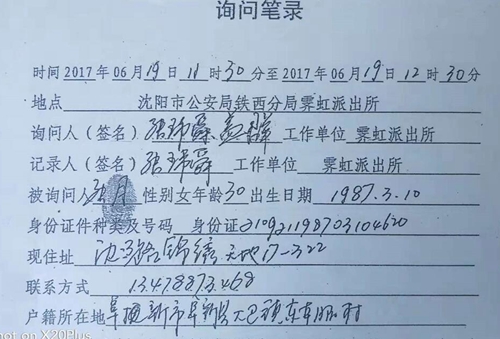 询问笔录
时间 2017 年 06 月 19 日 11 时 30 分至 2017 年 06 月 19 日 12 时 30 分
地点 沈阳市公安局铁西分局霁虹派出所
询问人(签名) 工作单位 霁虹派出所
记录人(签名) 工作单位 霁虹派出所
被询问人 月 性别女年龄 30 出生日期 1987.3.10
身份证件种类及号码 身份证210921198703104620
现住址 路 天地 7-322
联系方式 13478873468
户籍所在地 阜新市阜新县大巴镇东 村
hot on X20Plus